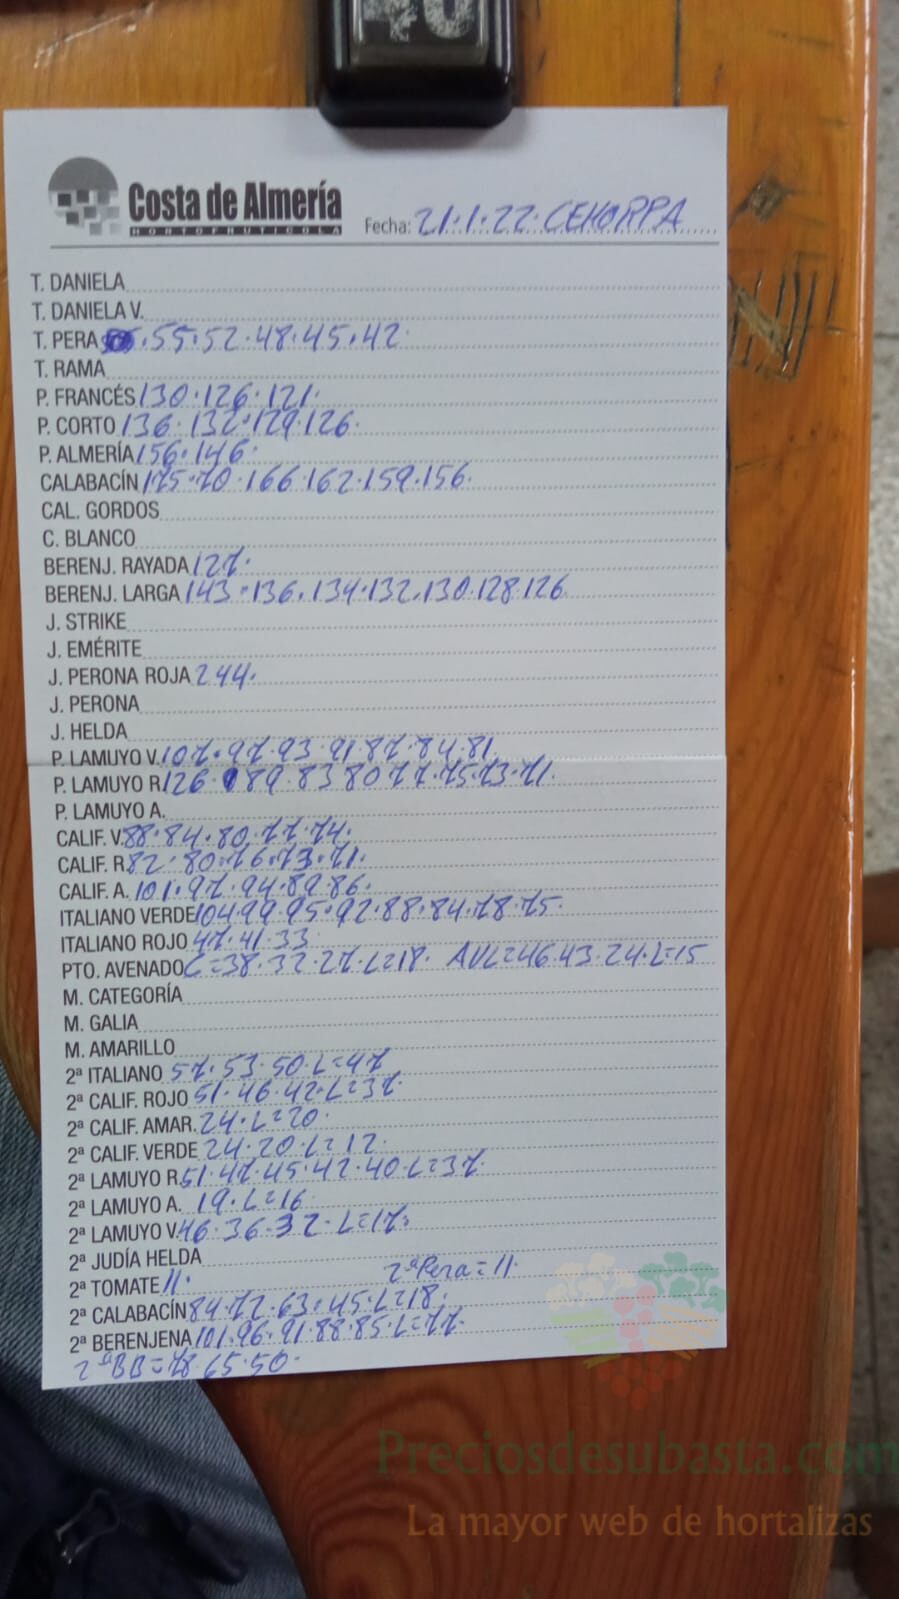 Costa de Almería
HORTOFRUTICOLA
Fecha: 21.1.22. CEHORPA
T. DANIELA
T. DANIELA V.
T. PERA .55.52.48.45.42.
T. RAMA
P. FRANCÉS 130.126.121.
P. CORTO 136.132.129.126.
P. ALMERÍA 156.146.
CALABACÍN 175.70.166.162.159.156.
CAL. GORDOS
C. BLANCO
BERENJ. RAYADA 127.
BERENJ. LARGA 143.136.134.132.130.128.126
J. STRIKE
J. EMÉRITE
J. PERONA ROJA 244.
J. PERONA
J. HELDA
P. LAMUYO V. 107.97.93.91.87.84.81.
P. LAMUYO R. 126.89.83.80.77.75.73.71.
P. LAMUYO A.
CALIF. V. 88.84.80.77.74.
CALIF. R. 82.80.76.73.71.
CALIF. A. 101.97.94.89.86.
ITALIANO VERDE 104.99.95.92.88.84.78.75.
ITALIANO ROJO 47.41.33
PTO. AVENADO C=38.32.27.L=18. AVL=46.43.24.L=15
M. CATEGORÍA
M. GALIA
M. AMARILLO
2ª ITALIANO 57.53.50.L=47
2ª CALIF. ROJO 51.46.42.L=37.
2ª CALIF. AMAR. 24.L=20.
2ª CALIF. VERDE 24.20.L=12.
2ª LAMUYO R. 51.47.45.42.40.L=37.
2ª LAMUYO A. 19.L=16
2ª LAMUYO V. 46.36.32.L=17.
2ª JUDÍA HELDA
2ª TOMATE 11. 2ªPera=11.
2ª CALABACÍN 84.72.63.45.L=18.
2ª BERENJENA 101.96.91.88.85.L=77.
2ªBB=78.65.50.
Preciosdesubasta.com
La mayor web de hortalizas